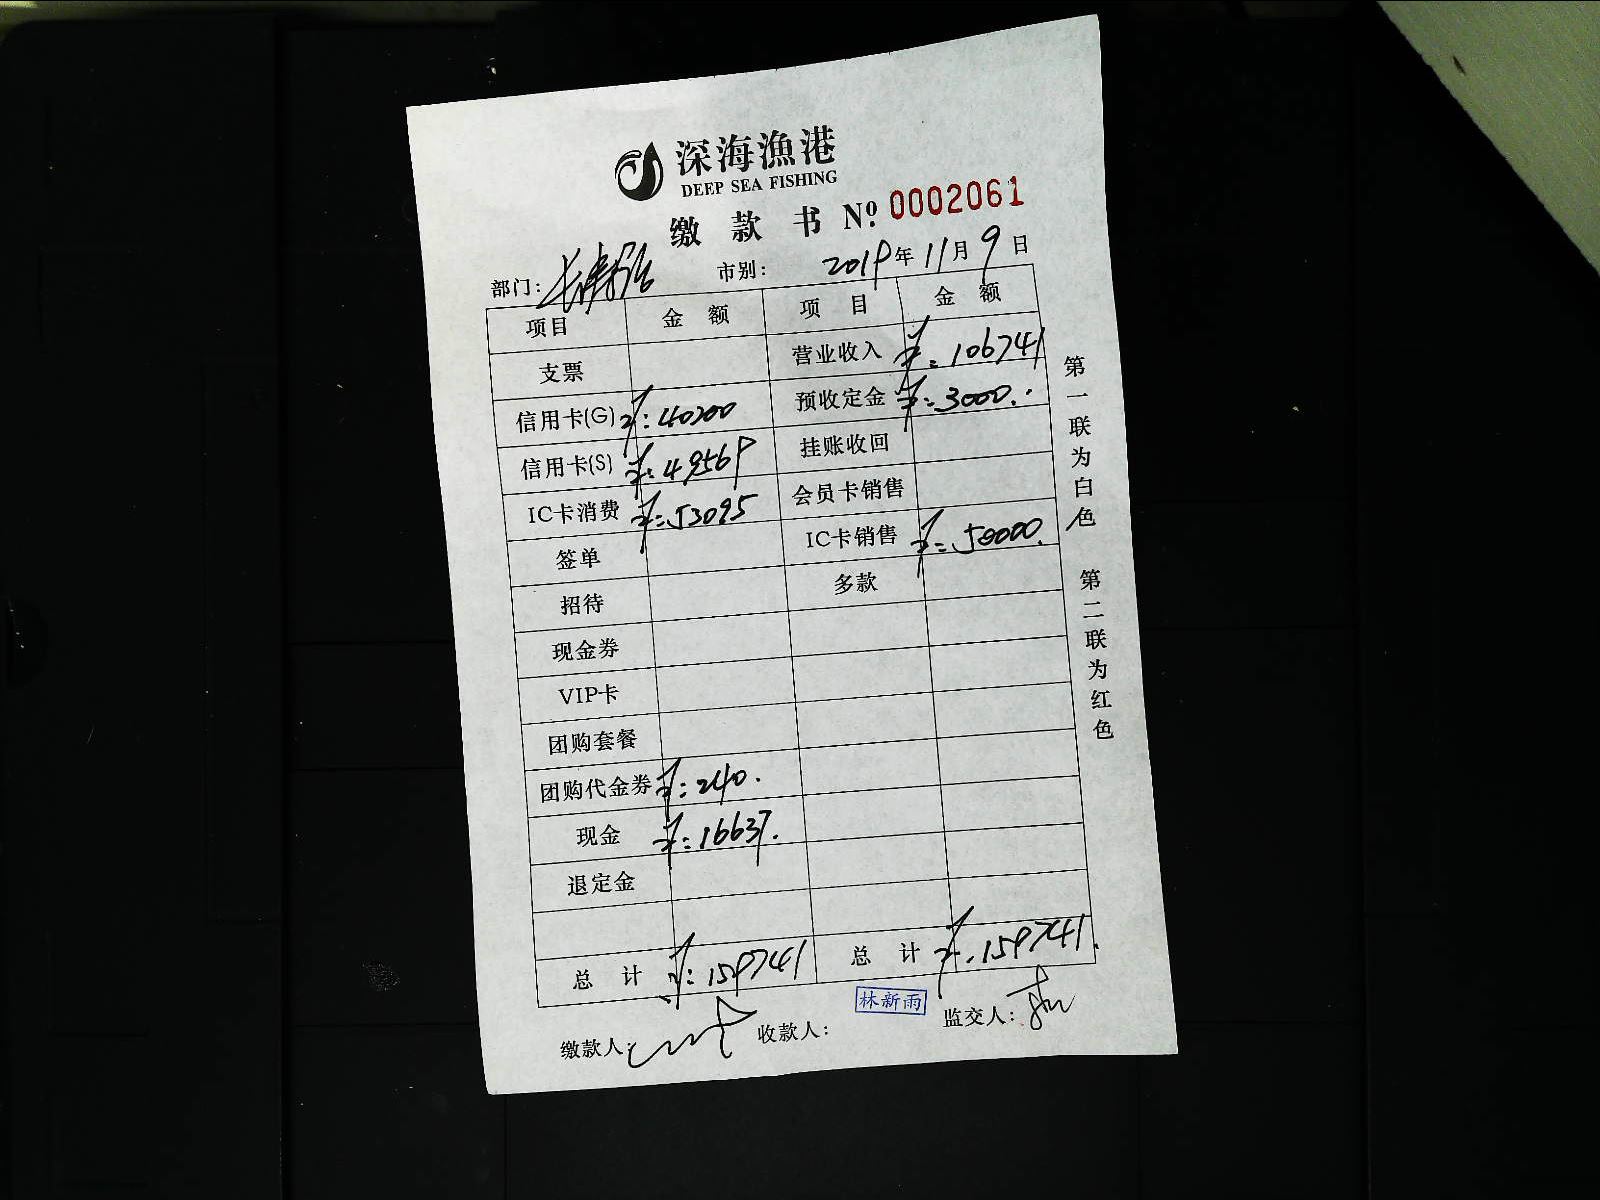 深海漁港
DEEP SEA FISHING
缴款书 Nº. 0002061
部门: 市别: 2019年11月9日
项目 金额 项目 金额
支票 营业收入 ¥: 106741
信用卡(G) ¥: 40200 预收定金 ¥: 3000.
信用卡(S) ¥: 49569 挂账收回
IC卡消费 ¥: 53095 会员卡销售
签单 IC卡销售 ¥: 50000.
招待 多款
现金券
VIP卡
团购套餐
团购代金券 ¥: 240.
现金 ¥: 16637.
退定金
总计 ¥: 159741 总计 ¥: 159741.
缴款人: 收款人: 林新雨 监交人:
第一联为白色 第二联为红色